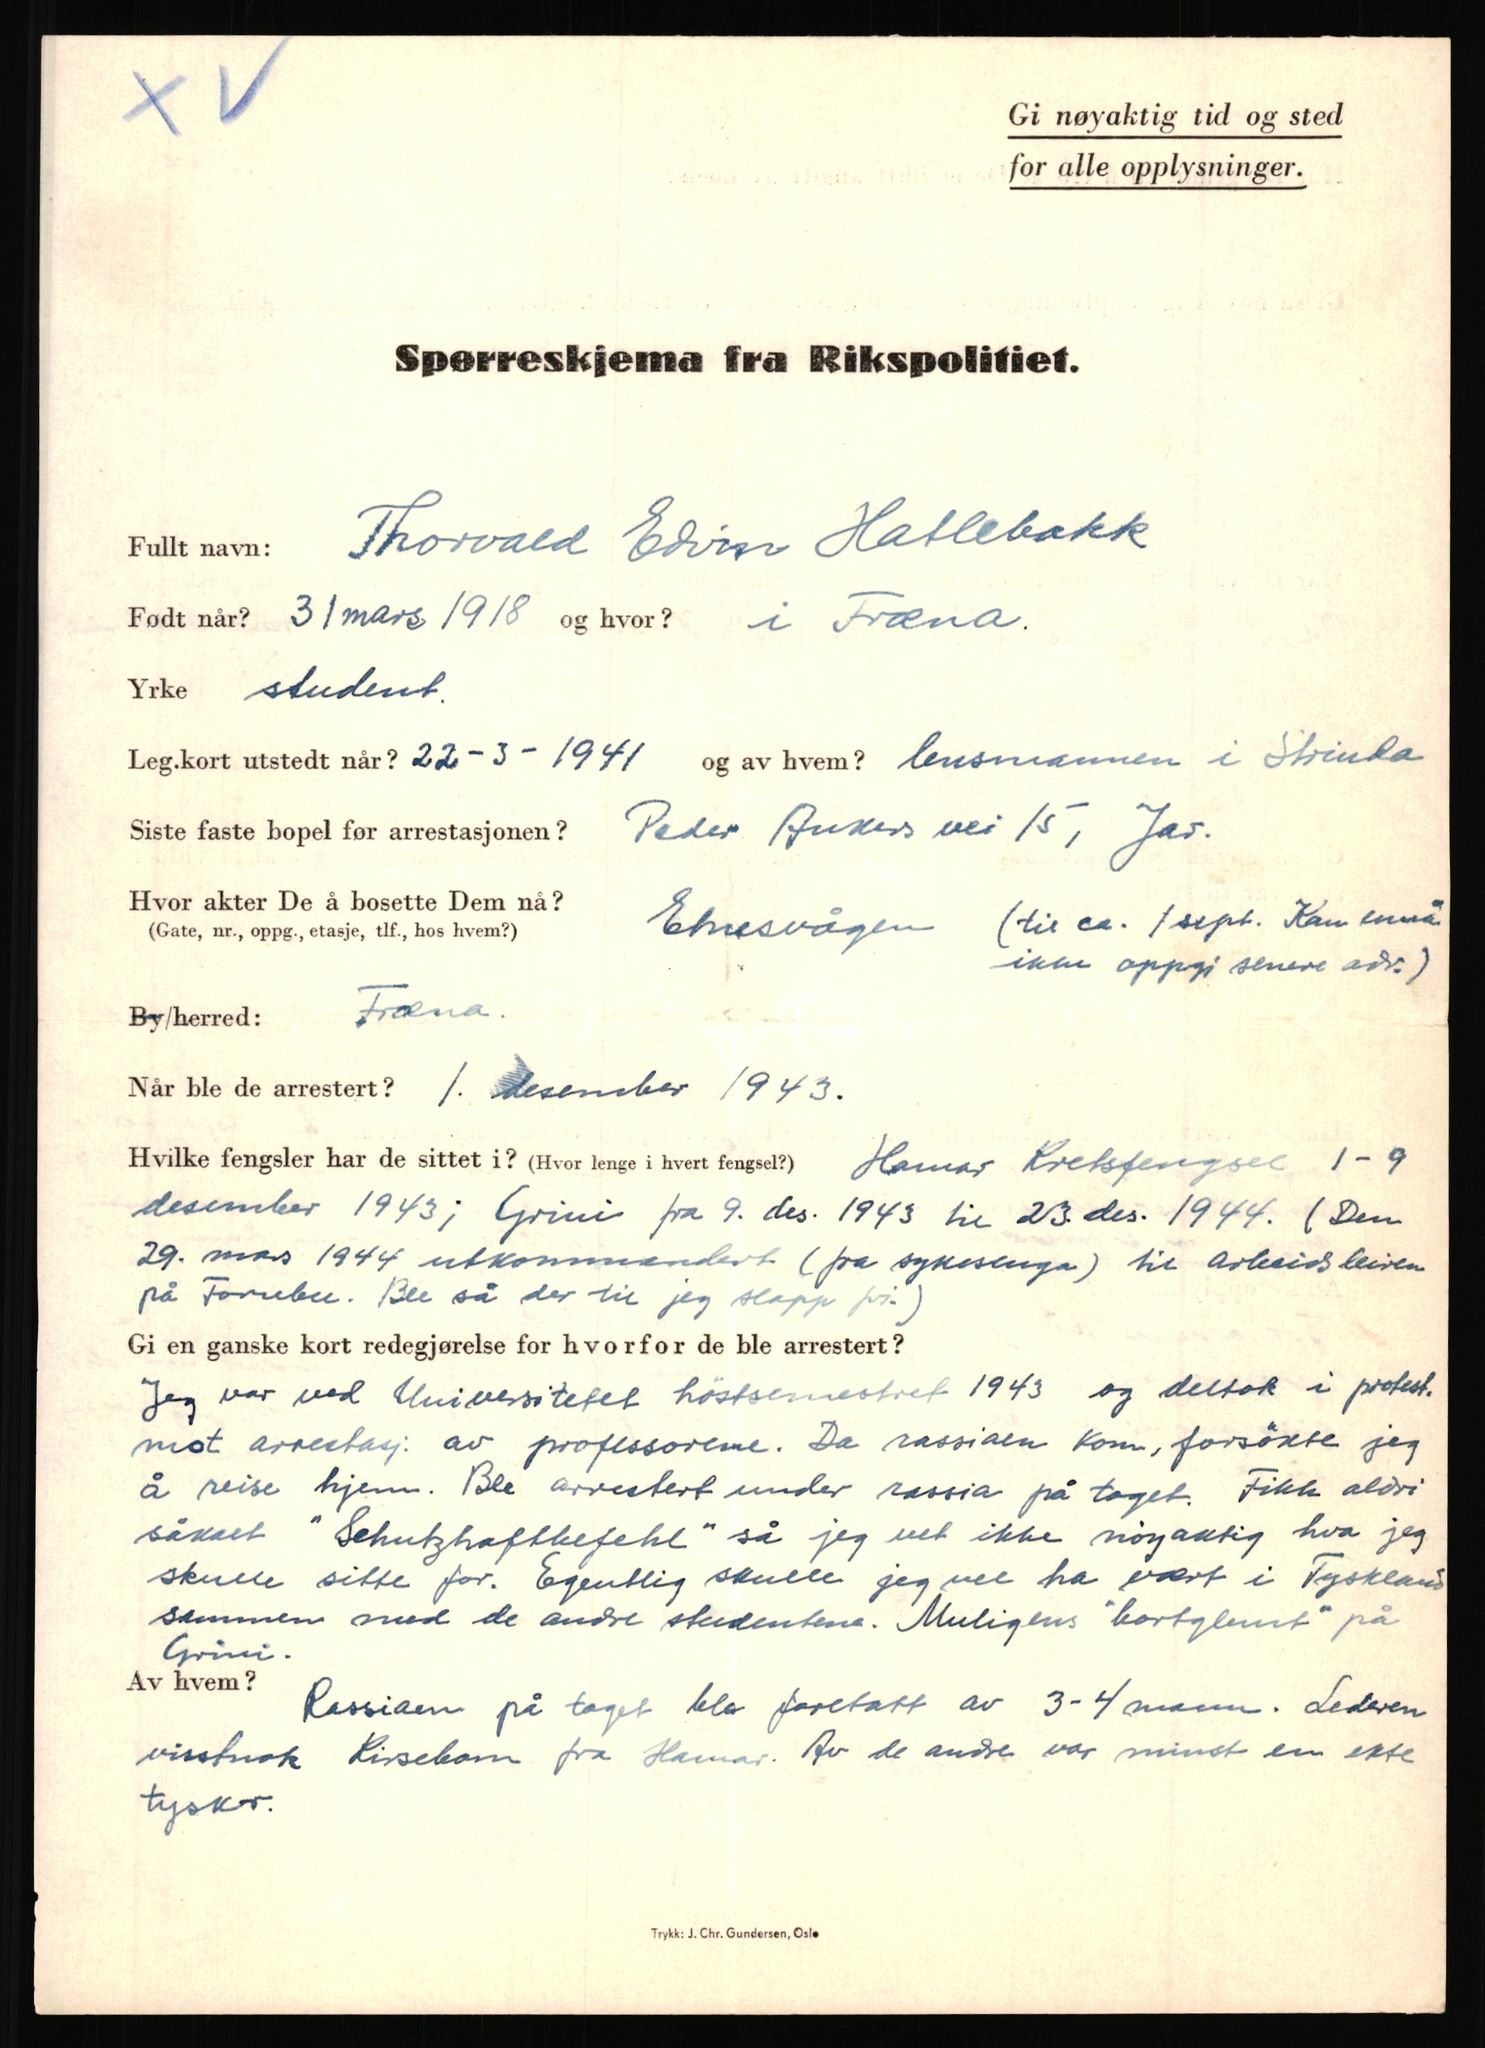 X V
Gi nøyaktig tid og sted
for alle opplysninger.
Spørreskjema fra Rikspolitiet.
Fullt navn: Thorvald Edvin Hatlebakk
Født når? 31 mars 1918 og hvor? i Fræna.
Yrke student.
Leg.kort utstedt når? 22-3-1941 og av hvem? lensmannen i Strinda
Siste faste bopel før arrestasjonen? Peder Ankers vei 15, Jar.
Hvor akter De å bosette Dem nå? Elnesvågen (til ca. 1 sept. Kan ennå
(Gate, nr., oppg., etasje, tlf., hos hvem?) ikke oppgi senere adr.)
By/herred: Fræna.
Når ble de arrestert? 1. desember 1943.
Hvilke fengsler har de sittet i? (Hvor lenge i hvert fengsel?) Hamar Kretsfengsel 1-9
desember 1943; Grini fra 9. des. 1943 til 23. des. 1944. (Den
29. mars 1944 utkommandert (fra sykesenga) til arbeidsleiren
på Fornebu. Ble så der til jeg slapp fri.)
Gi en ganske kort redegjørelse for hvorfor de ble arrestert?
Jeg var ved Universitetet höstsemestret 1943 og deltok i protest.
mot arrestasj. av professorene. Da rassiaen kom, forsökte jeg
å reise hjem. Ble arrestert under rassia på toget. Fikk aldri
såkalt "Schutzhaftbefehl" så jeg vet ikke nöyaktig hva jeg
skulle sitte for. Egentlig skulle jeg vel ha vært i Tyskland
sammen med de andre studentene. Muligens "bortglemt" på
Grini.
Av hvem? Rassiaen på toget ble foretatt av 3-4 mann. Lederen
visstnok Kirsebom fra Hamar. Av de andre var minst en ekte
tysker.
Trykk: J. Chr. Gundersen, Oslo